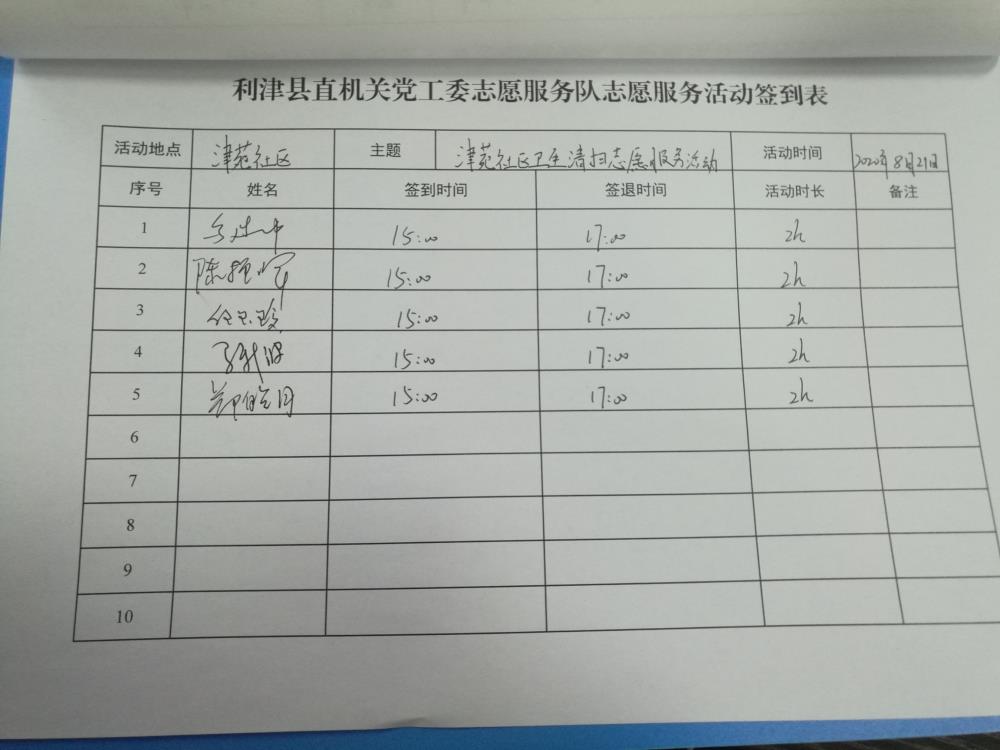 利津县直机关党工委志愿服务队志愿服务活动签到表
活动地点 津苑社区 主题 津苑社区卫生清扫志愿服务活动 活动时间 2020年8月21日
序号 姓名 签到时间 签退时间 活动时长 备注
1 15:00 17:00 2h
2 陈 15:00 17:00 2h
3 任 15:00 17:00 2h
4 15:00 17:00 2h
5 15:00 17:00 2h
6
7
8
9
10